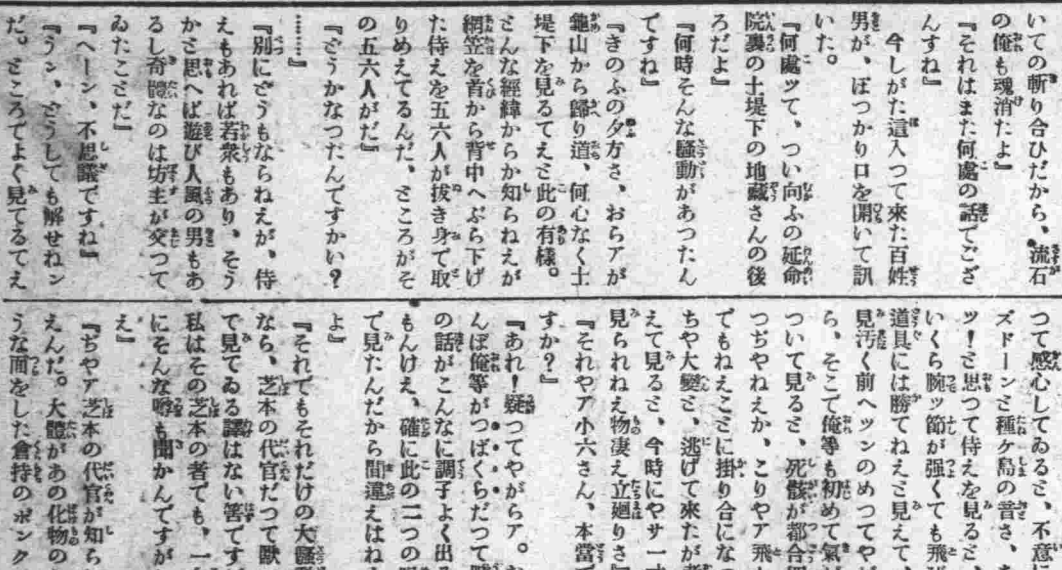 いての斬り合ひだから、流石
の俺も魂消たよ』
『それはまた何處の話でござ
んすね』
今しがた這入つて來た百姓
男が、ぽつかり口を開いて訊
いた。
『何處ッて、つい向ふの延命
院裏の土堤下の地藏さんの後
ろだよ』
『何時そんな騷動があつたん
ですね』
『きのふの夕方さ、おらアが
龜山から歸り道、何心なく土
堤下を見るてえと此の有様。
どんな經緯からか知らねえが
網笠を首から背中へぶら下げ
た侍えを五六人が拔き身で取
りめえてるんだ、ところがそ
の五六人がだ』
『どうかなつたんですかい？
………』
『別にどうもならねえが、侍
えもあれば若衆もあり、そう
かと思へば遊び人風の男もあ
るし奇體なのは坊主が交つて
ゐたことだ』
『ヘーン、不思議ですね』
『うン、どうしても解せねン
だ。ところでよく見てるてえ
つて感心してゐると、不意に
ズドーンと種ケ島の音さ、
ッ！と思つて侍えを見ると、
いくら腕ッ節が强くても飛び
道具には勝てねえと見えて、
見汚く前へツンのめつてや
ら、そこで俺等も初めて氣
ついて見ると、死骸が都合
つぢやねえか、こりやア飛
でもねえことに掛り合にな
ちや大變と、逃げて來たが
えて見ると、今時にやサー
見られねえ物凄え立廻りさ』
『それやア小六さん、本當
すか？』
『あれ！疑つてやがらア。
んぼ俺等がつばくらだつて
の話がこんなに調子よく出
もんけえ、確に此の二つの
で見たんだから間違えはね
よ』
『それでもそれだけの大騷
なら、芝本の代官だつて默
で見てゐる譯はない筈です
私はその芝本の者でも、一
にそんな噂も聞かんですが
え』
『ぢやア芝本の代官が知ら
えんだ。大體があの化物の
うな面をした倉持のポンク